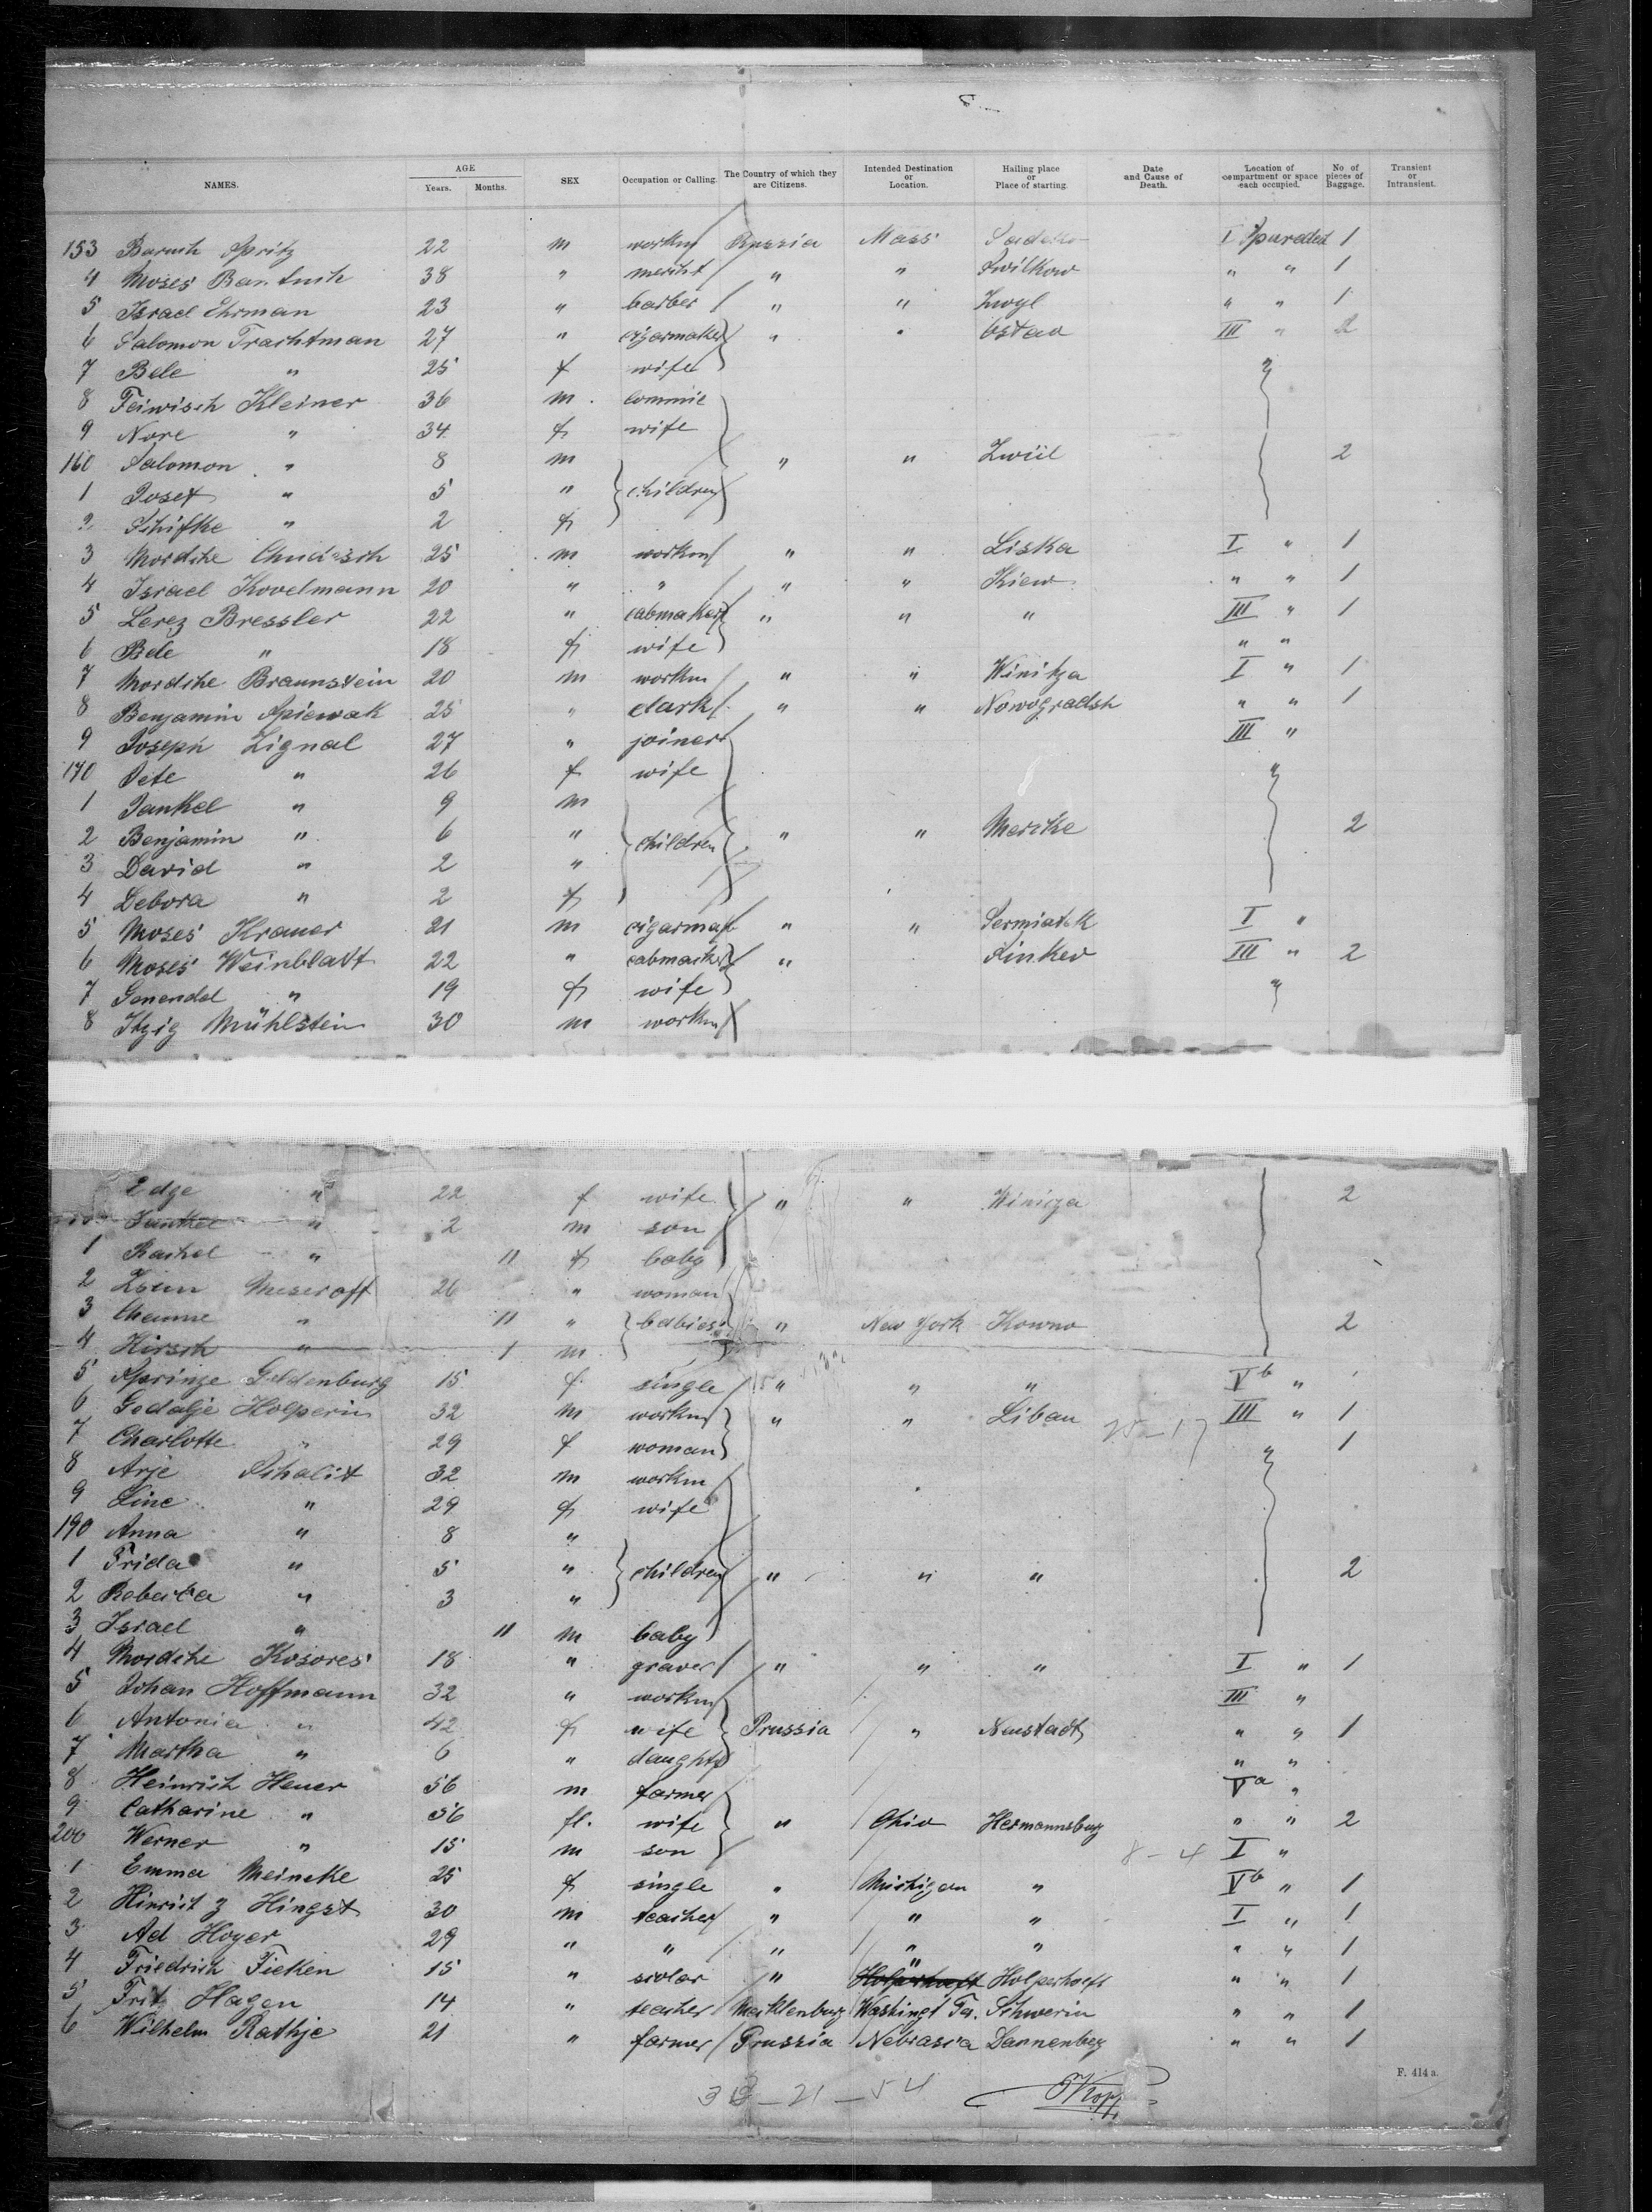 NAMES. AGE Years. Months. SEX Occupation or Calling. The Country of which they are Citizens. Intended Destination or Location. Hailing place or Place of starting. Date and Cause of Death. Location of compartment or space each occupied. No. of pieces of Baggage. Transient or Intransient.
153 Baruch Spritz 22 m workm Russia Mass I 1
4 Moses 38 " mercht " " Swilkow " " 1
5 Israel Ehrman 23 " barber " " Zwyl " " 1
6 Salomon Trachtman 27 " cigarmaker " " Ostao III " 2
7 Bele " 25 f wife "
8 Feiwisch Kleiner 36 m commie
9 Nore " 34 f wife
160 Salomon " 8 m " " Zwiil 2
1 Josef " 5 " children
2 Schifke " 2 f
3 Mordche 25 m workm " " Liska I " 1
4 Israel Kovelmann 20 " " " " Kiew " " 1
5 Lerez Bressler 22 " cabmaker " " " III " 1
6 Bele " 18 f wife " "
7 Mordche Braunstein 20 m workm " " Winitza I " 1
8 Benjamin Spiewak 25 " clark " " Nowogradsh " " 1
9 Joseph Zignal 27 " joiner III "
170 Pete " 26 f wife "
1 Jankel " 9 m
2 Benjamin " 6 " children " " Mericke 2
3 David " 2 "
4 Debora " 2 f
5 Moses Kramer 21 m cigarmak " " Sermiatik I "
6 Moses Weinblatt 22 " cabmacher " Pinkev III " 2
7 Genendel " 19 f wife "
8 Itzig Mühlstein 30 m workm
Edge " 22 f wife " " Winiza 2
Jankel " 2 m son
1 Rachel " 11 f baby
2 Meseroff 26 " woman
3 Channe " 11 " babies " New York Kowno 2
4 Hirsch " 1 m
5 Sprinze Goldenburg 15 f single " " " Vb "
6 Godalje Holperin 32 m workm " " Libau III " 1
7 Charlotte " 29 f woman " 1
8 Arje Schalit 32 m workm
9 Line " 29 f wife
190 Anna " 8 "
1 Frida " 5 " children " " " 2
2 Rebecka " 3 "
3 Israel " 11 m baby
4 Mordche Kosores 18 " graver " " " I " 1
5 Johan Hoffmann 32 " workm III "
6 Antonia " 42 f wife Prussia " Neustadt " " 1
7 Martha " 6 " daught " "
8 Heinrich Heuer 56 m farmer Va "
9 Catharine " 56 f. wife " Ohio Hermannsburg " " 2
200 Werner " 15 m son 8-4 I "
1 Emma Meineke 25 f single " Michigan " Vb " 1
2 Hinrich Hingst 30 m teacher " " " I " 1
3 Ad Hoyer 29 " " " " " " " 1
4 Friedrich Fieken 15 " " " Holperhoefs " " 1
5 Fritz Hagen 14 " teacher Mecklenburg Washingt Ta. Schwerin " " 1
6 Wilhelm Rathje 21 " farmer Prussia Nebrasca Dannenberg " " 1
F. 414 a.